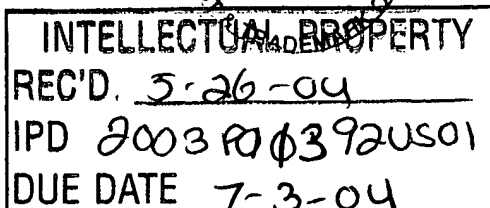 INTELLECTUAL PROPERTY
REC'D. 5-26-04
IPD 2003P00392US01
DUE DATE 7-3-04